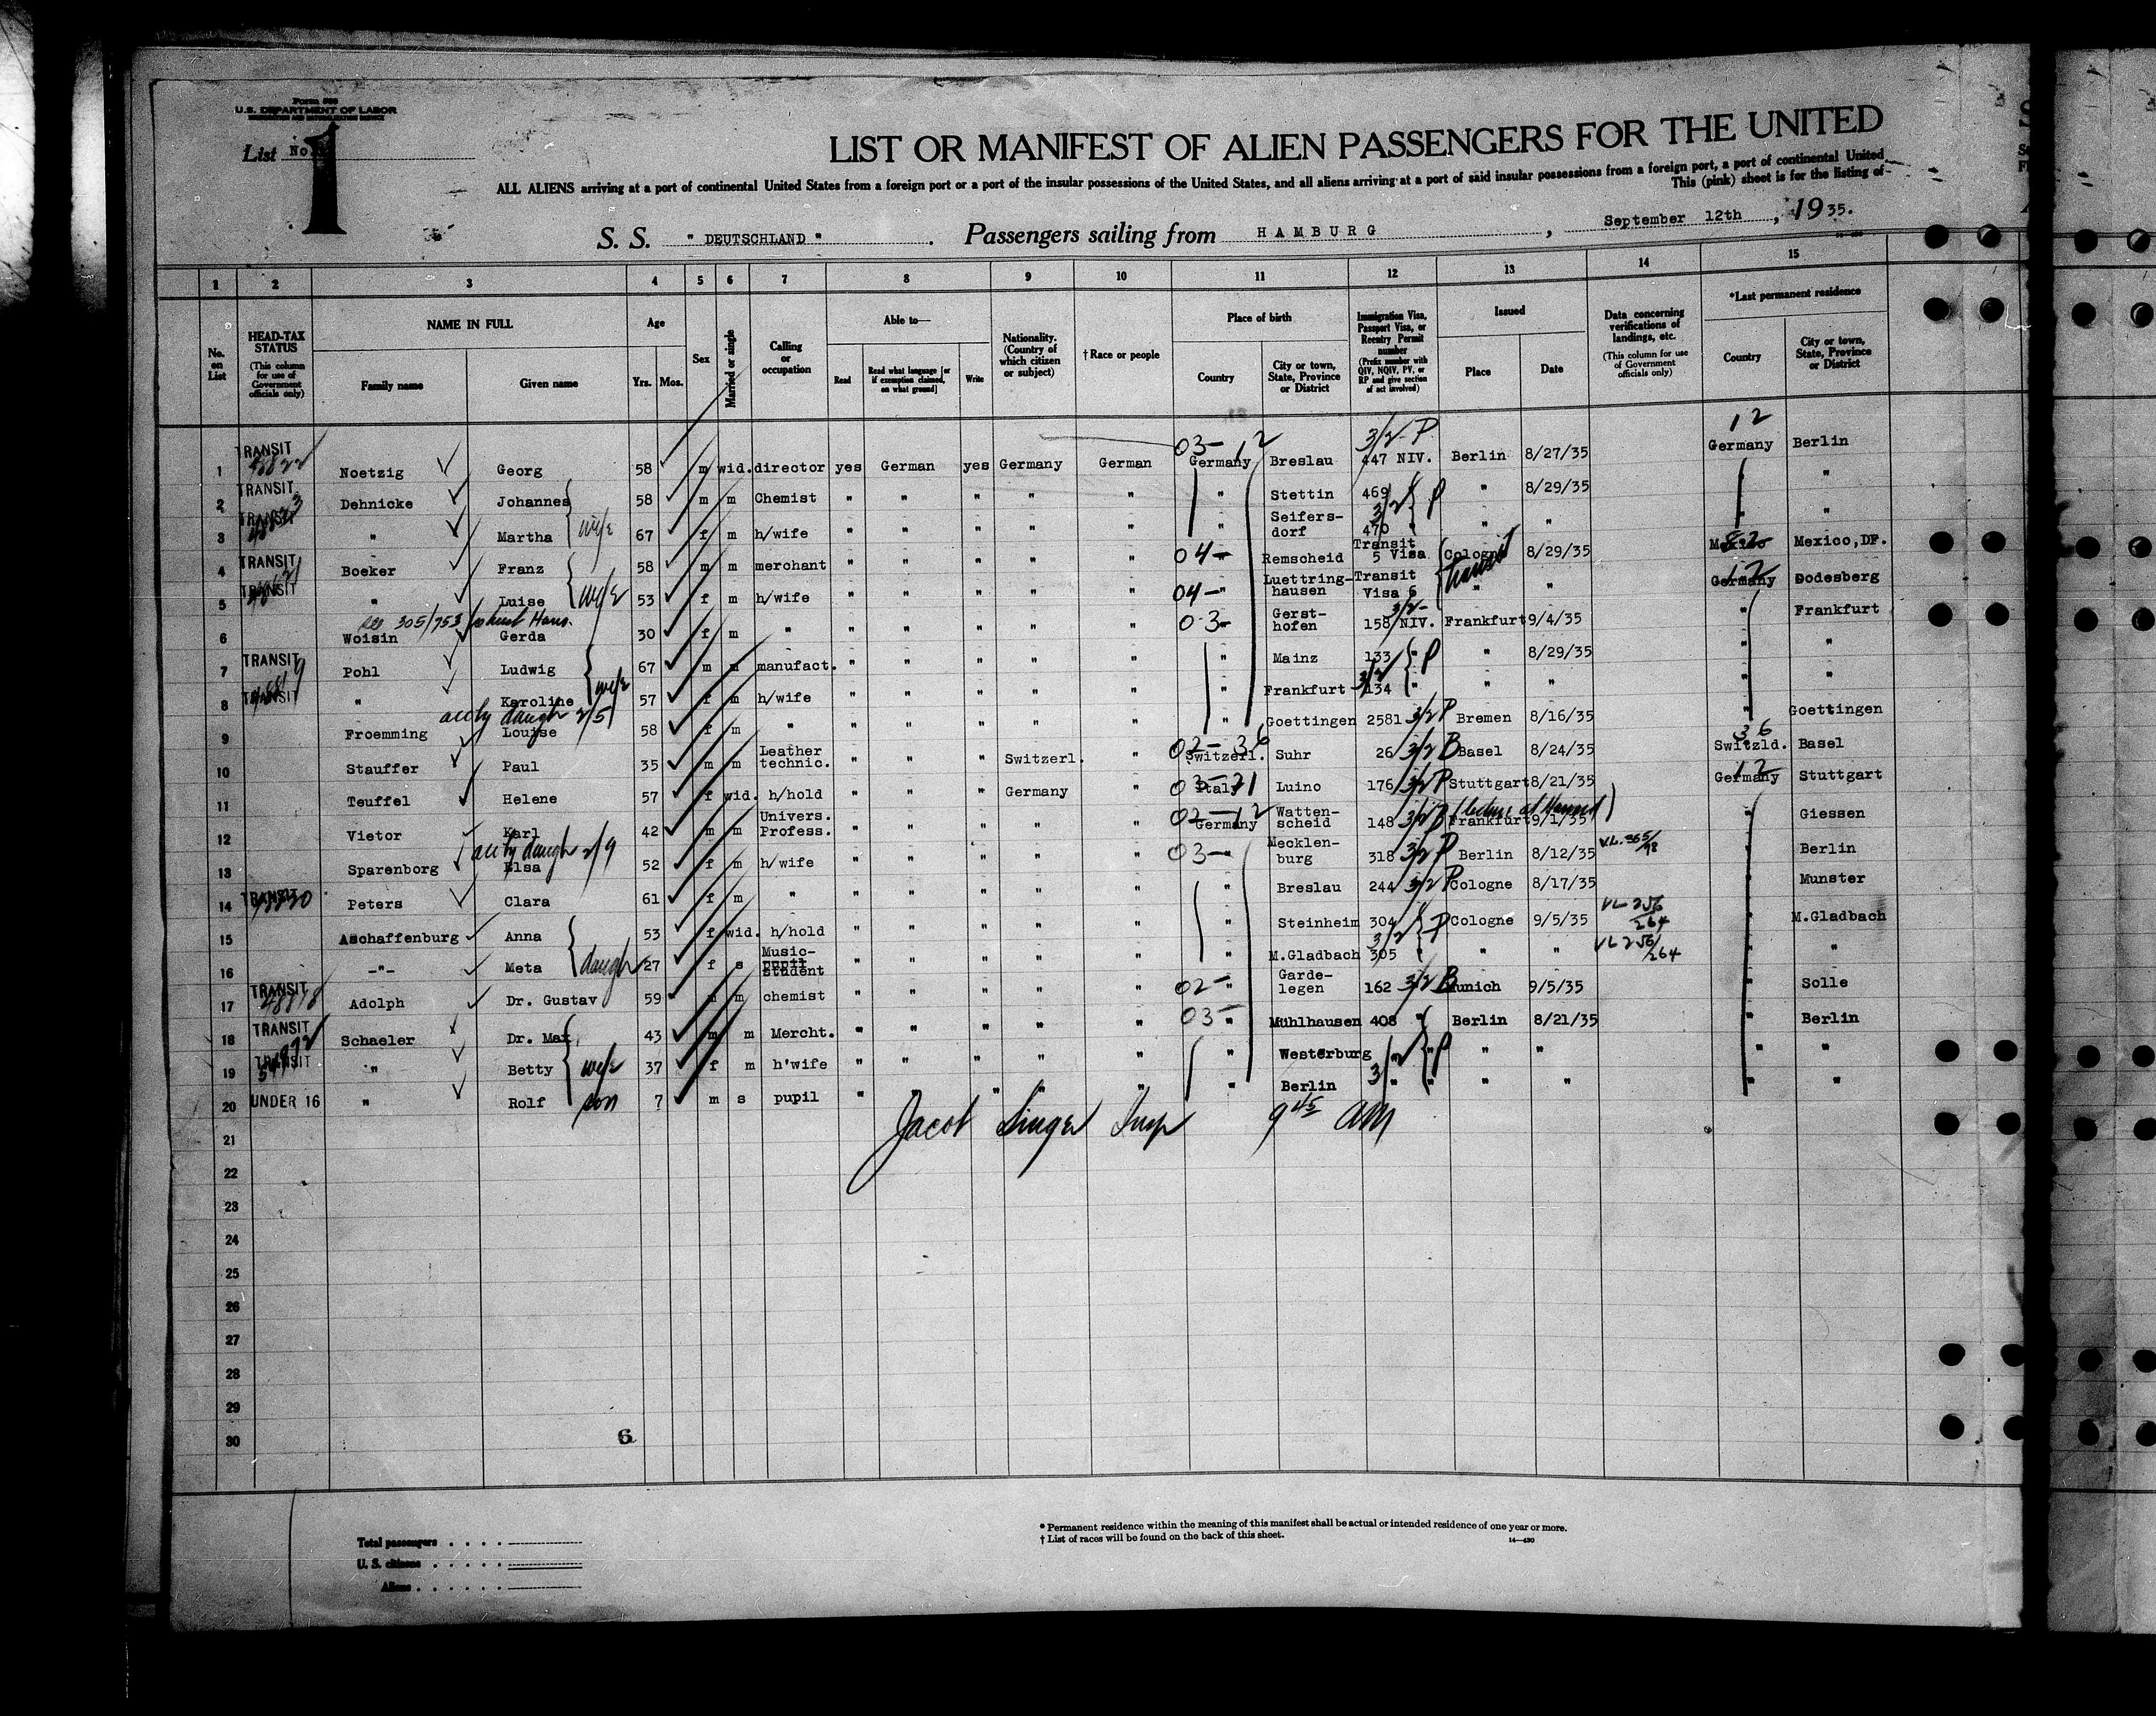 Form 500
U.S. DEPARTMENT OF LABOR
List No. 1
LIST OR MANIFEST OF ALIEN PASSENGERS FOR THE UNITED
ALL ALIENS arriving at a port of continental United States from a foreign port or a port of the insular possessions of the United States, and all aliens arriving at a port of said insular possessions from a foreign port, a port of continental United
This (pink) sheet is for the listing of
S. S. " DEUTSCHLAND " . Passengers sailing from HAMBURG , September 12th , 1935.
1 2 3 4 5 6 7 8 9 10 11 12 13 14 15
No. on List
HEAD-TAX STATUS (This column for use of Government officials only)
NAME IN FULL Family name Given name
Age Yrs. Mos.
Sex
Married or single
Calling or occupation
Able to— Read Read what language [or if exemption claimed, on what ground] Write
Nationality. (Country of which citizen or subject)
†Race or people
Place of birth Country City or town, State, Province or District
Immigration Visa, Passport Visa, or Reentry Permit number (Prefix number with QIV, NQIV, PV, or RP and give section of act involved)
Issued Place Date
Data concerning verifications of landings, etc. (This column for use of Government officials only)
*Last permanent residence Country City or town, State, Province or District
03- 12 3/2-P 12
1 TRANSIT Noetzig Georg 58 m wid. director yes German yes Germany German Germany Breslau 447 NIV. Berlin 8/27/35 Germany Berlin
2 TRANSIT Dehnicke Johannes 58 m m Chemist " " " " " " Stettin 469 3/2 P " 8/29/35 " "
3 TRANSIT " Martha wife 67 f m h/wife " " " " " " Seifersdorf 470 " " " " "
4 TRANSIT Boeker Franz 58 m m merchant " " " " " 04- Remscheid Transit 5 Visa Cologne transit 8/29/35 Mexico Mexico,DF.
5 TRANSIT " Luise wife 53 f m h/wife " " " " " 04- " Luettringhausen Transit Visa 6 " " Germany 12 Dodesberg
see 305/753
6 Woisin Gerda 30 f m " " " " " " 03- Gersthofen 158 3/2- NIV. Frankfurt 9/4/35 " Frankfurt
7 TRANSIT Pohl Ludwig 67 m m manufact. " " " " " " Mainz 133 " P " 8/29/35 " "
8 TRANSIT " Karoline wife 57 f m h/wife " " " " " " Frankfurt 3/2 134 " " " " "
9 Froemming Louise 58 f m " " " " " " " Goettingen 2581 3/2 P Bremen 8/16/35 " Goettingen
10 Stauffer Paul 35 m m Leather technic. " " " Switzerl. " 02- 36 Switzerl. Suhr 26 3/2 B Basel 8/24/35 36 Switzld. Basel
11 Teuffel Helene 57 f wid. h/hold " " " Germany " Italy Luino 176 3/2 P Stuttgart 8/21/35 12 Germany Stuttgart
12 Vietor Karl 42 m m Univers. Profess. " " " " " 02-12 Germany Wattenscheid 148 3/2 B Frankfurt 9/1/35 " Giessen
13 Sparenborg Elsa 52 f m h/wife " " " " " 03- " Mecklenburg 318 3/2 P Berlin 8/12/35 " Berlin
14 TRANSIT Peters Clara 61 f m " " " " " " " Breslau 244 3/2 P Cologne 8/17/35 " Munster
15 Aschaffenburg Anna 53 f wid. h/hold " " " " " " Steinheim 304 3/2 P Cologne 9/5/35 VL 256/264 " M.Gladbach
16 -"- Meta daugh 27 f s Music- pupil student " " " " " " M.Gladbach 305 " " VL 256/264 " "
17 TRANSIT Adolph Dr. Gustav 59 m m chemist " " " " " 02- " Gardelegen 162 3/2 B Munich 9/5/35 " Solle
18 TRANSIT Schaeler Dr. Max 43 m m Mercht. " " " " " 03- " Mühlhausen 408 " Berlin 8/21/35 " Berlin
19 TRANSIT " Betty wife 37 f m h'wife " " " " " " Westerburg 3/2 " P " " " "
20 UNDER 16 " Rolf son 7 m s pupil " " " " " " Berlin " " " " " "
Jacob Singer Insp 9 45 AM
21
22
23
24
25
26
27
28
29
30
6
Total passengers . . . .
U. S. citizens . . . . .
Aliens . . . . . .
* Permanent residence within the meaning of this manifest shall be actual or intended residence of one year or more.
† List of races will be found on the back of this sheet.
14—430